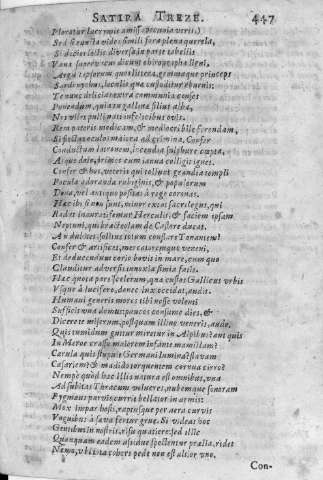 SATIRA TREZE. 447
Ploratur lacrymis amissa pecunia veris.)
Sed si cuncta vides simili fora plena querela,
Si decies lectis diversa in parte tabellis
Vana supervacui dicunt chirographa ligni,
Arguit ipsorum quos littera, gemmaque princeps
Sardonychus, loculis quae custoditur eburnis:
Ten' unc delicias extra communia censes
Ponendum, quia tu gallinae filius albae,
Nos viles pulli nati infelicibus ovis.
Rem pateris modicam, & mediocri bile ferendam,
Si flectas oculos maiora ad crimina. Confer
Conductum latronem, incendia sulphure coepta,
Atque dolo, primos cum ianua colligit ignes.
Confer & hos, veteris qui tollunt grandia templi
Pocula adorandae rubiginis, & populorum
Dona, vel antiquo positas à rege coronas.
Haec ibi si non sunt, minor extat sacrilegus, qui
Radit inaurati femur Herculis, & faciem ipsam
Neptuni, qui bracteolam de Castore ducat.
An dubitet solitus totum conflare Tonantem?
Confer & artifices, mercatoremque veneni,
Et deducendum corio bovis in mare, cum quo
Clauditur adversis innoxia simia fatis.
Haec quota pars scelerum, quae custos Gallicus urbis
Usque à lucifero, donec lux occidat, audit.
Humani generis mores tibi nosse volenti
Sufficit una domus: paucos consume dies, &
Dicere te miserum, postquam illinc veneris, aude.
Quis tumidum guttur miratur in Alpibus? aut quis
In Meroe crasso maiorem infante mamillam?
Caerula quis stupuit Germani lumina? flavam
Caesariem? & madido torquentem cornua cirro?
Nempe quòd haec illis natura est omnibus, una
Ad subitas Thracum volucres, nubemque sonoram
Pygmaeus parvis currit bellator in armis:
Mox impar hosti, raptusque per aera curvis
Unguibus à saeva fertur grue. Si videas hoc
Gentibus in nostris, risu quatiere: sed illic
Quanquam eadem assidue spectentur praelia, ridet
Nemo, ubi tota cohors pede non est altior uno,
Con-